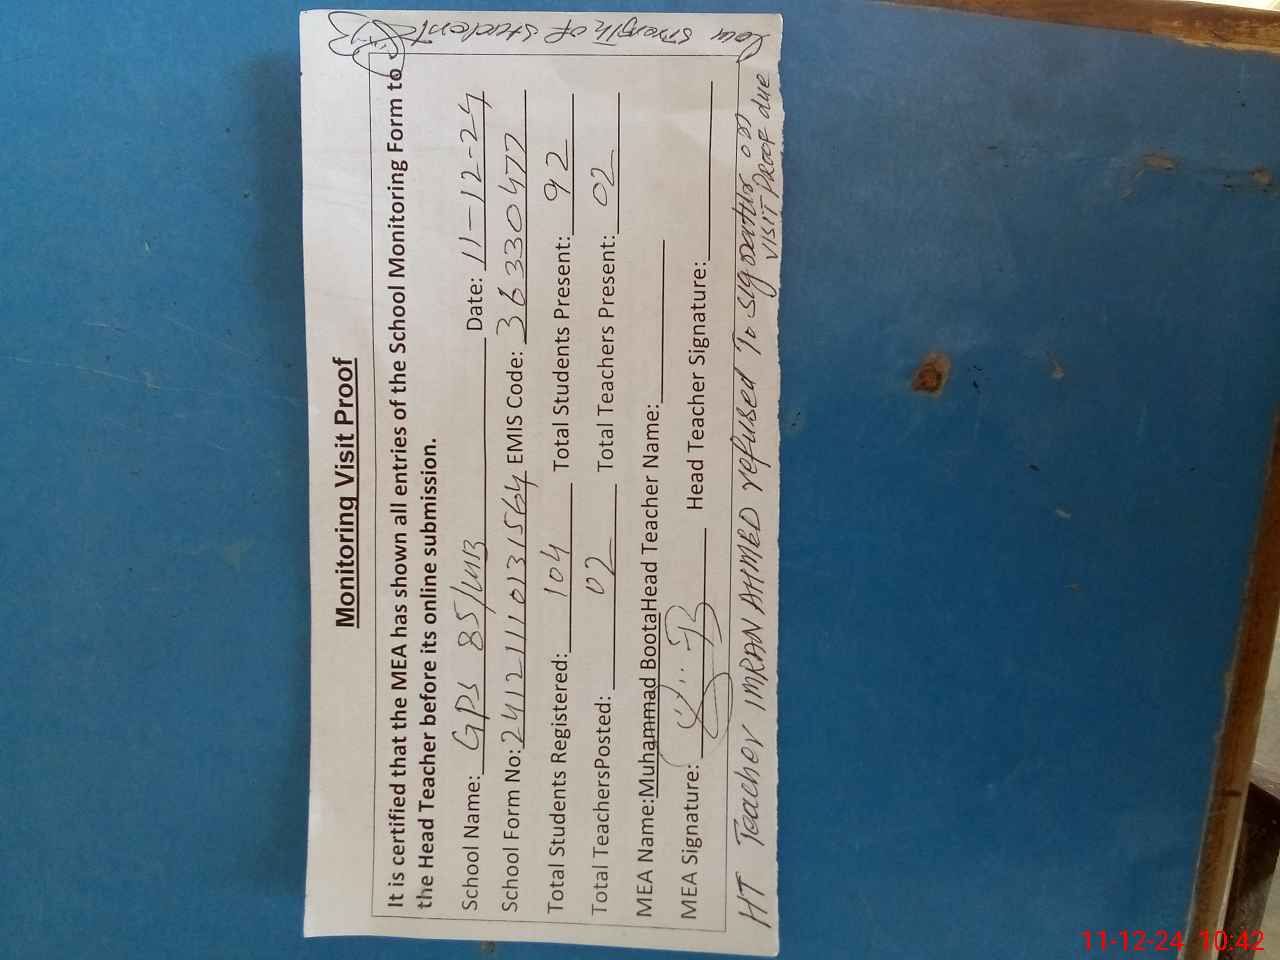 Monitoring Visit Proof
It is certified that the MEA has shown all entries of the School Monitoring Form to
the Head Teacher before its online submission.
School Name: GPS 85/WB Date: 11-12-24
School Form No: 24121110131564 EMIS Code: 36330477
Total Students Registered: 104 Total Students Present: 92
Total TeachersPosted: 02 Total Teachers Present: 02
MEA Name:Muhammad BootaHead Teacher Name:
MEA Signature: Head Teacher Signature:
HT Teacher IMRAN AHMED refused To signature on
VISIT Proof due
low strength of students
11-12-24 10:42